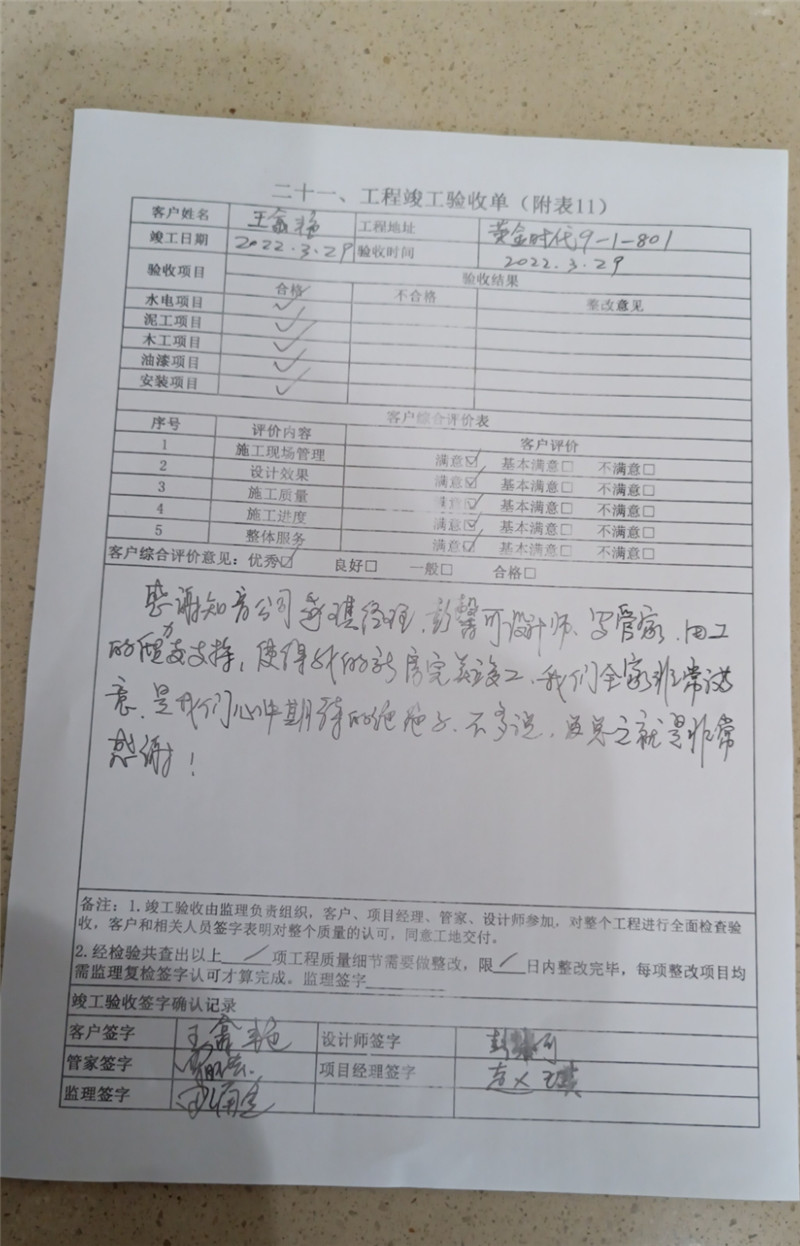 二十一、工程竣工验收单（附表11）
客户姓名 王鑫艳 工程地址 黄金时代9-1-801
竣工日期 2022.3.29 验收时间 2022.3.29
验收项目 验收结果
合格 不合格 整改意见
水电项目 ✓
泥工项目 ✓
木工项目 ✓
油漆项目 ✓
安装项目 ✓
客户综合评价表
序号 评价内容 客户评价
1 施工现场管理 满意☑ 基本满意□ 不满意□
2 设计效果 满意☑ 基本满意□ 不满意□
3 施工质量 满意☑ 基本满意□ 不满意□
4 施工进度 满意☑ 基本满意□ 不满意□
5 整体服务 满意☑ 基本满意□ 不满意□
客户综合评价意见：优秀☑ 良好□ 一般□ 合格□
感谢知音公司 琪经理、彭馨可设计师、 管家、田工
的 力支持，使得我的新房完美竣工，我们全家非常满
意，是我们心中期待的 不多说， 总之就是非常
感谢！
备注：1.竣工验收由监理负责组织，客户、项目经理、管家、设计师参加，对整个工程进行全面检查验
收，客户和相关人员签字表明对整个质量的认可，同意工地交付。
2.经检验共查出以上 / 项工程质量细节需要做整改，限 / 日内整改完毕，每项整改项目均
需监理复检签字认可才算完成。监理签字
竣工验收签字确认记录
客户签字 王鑫艳 设计师签字 彭 可
管家签字 项目经理签字
监理签字